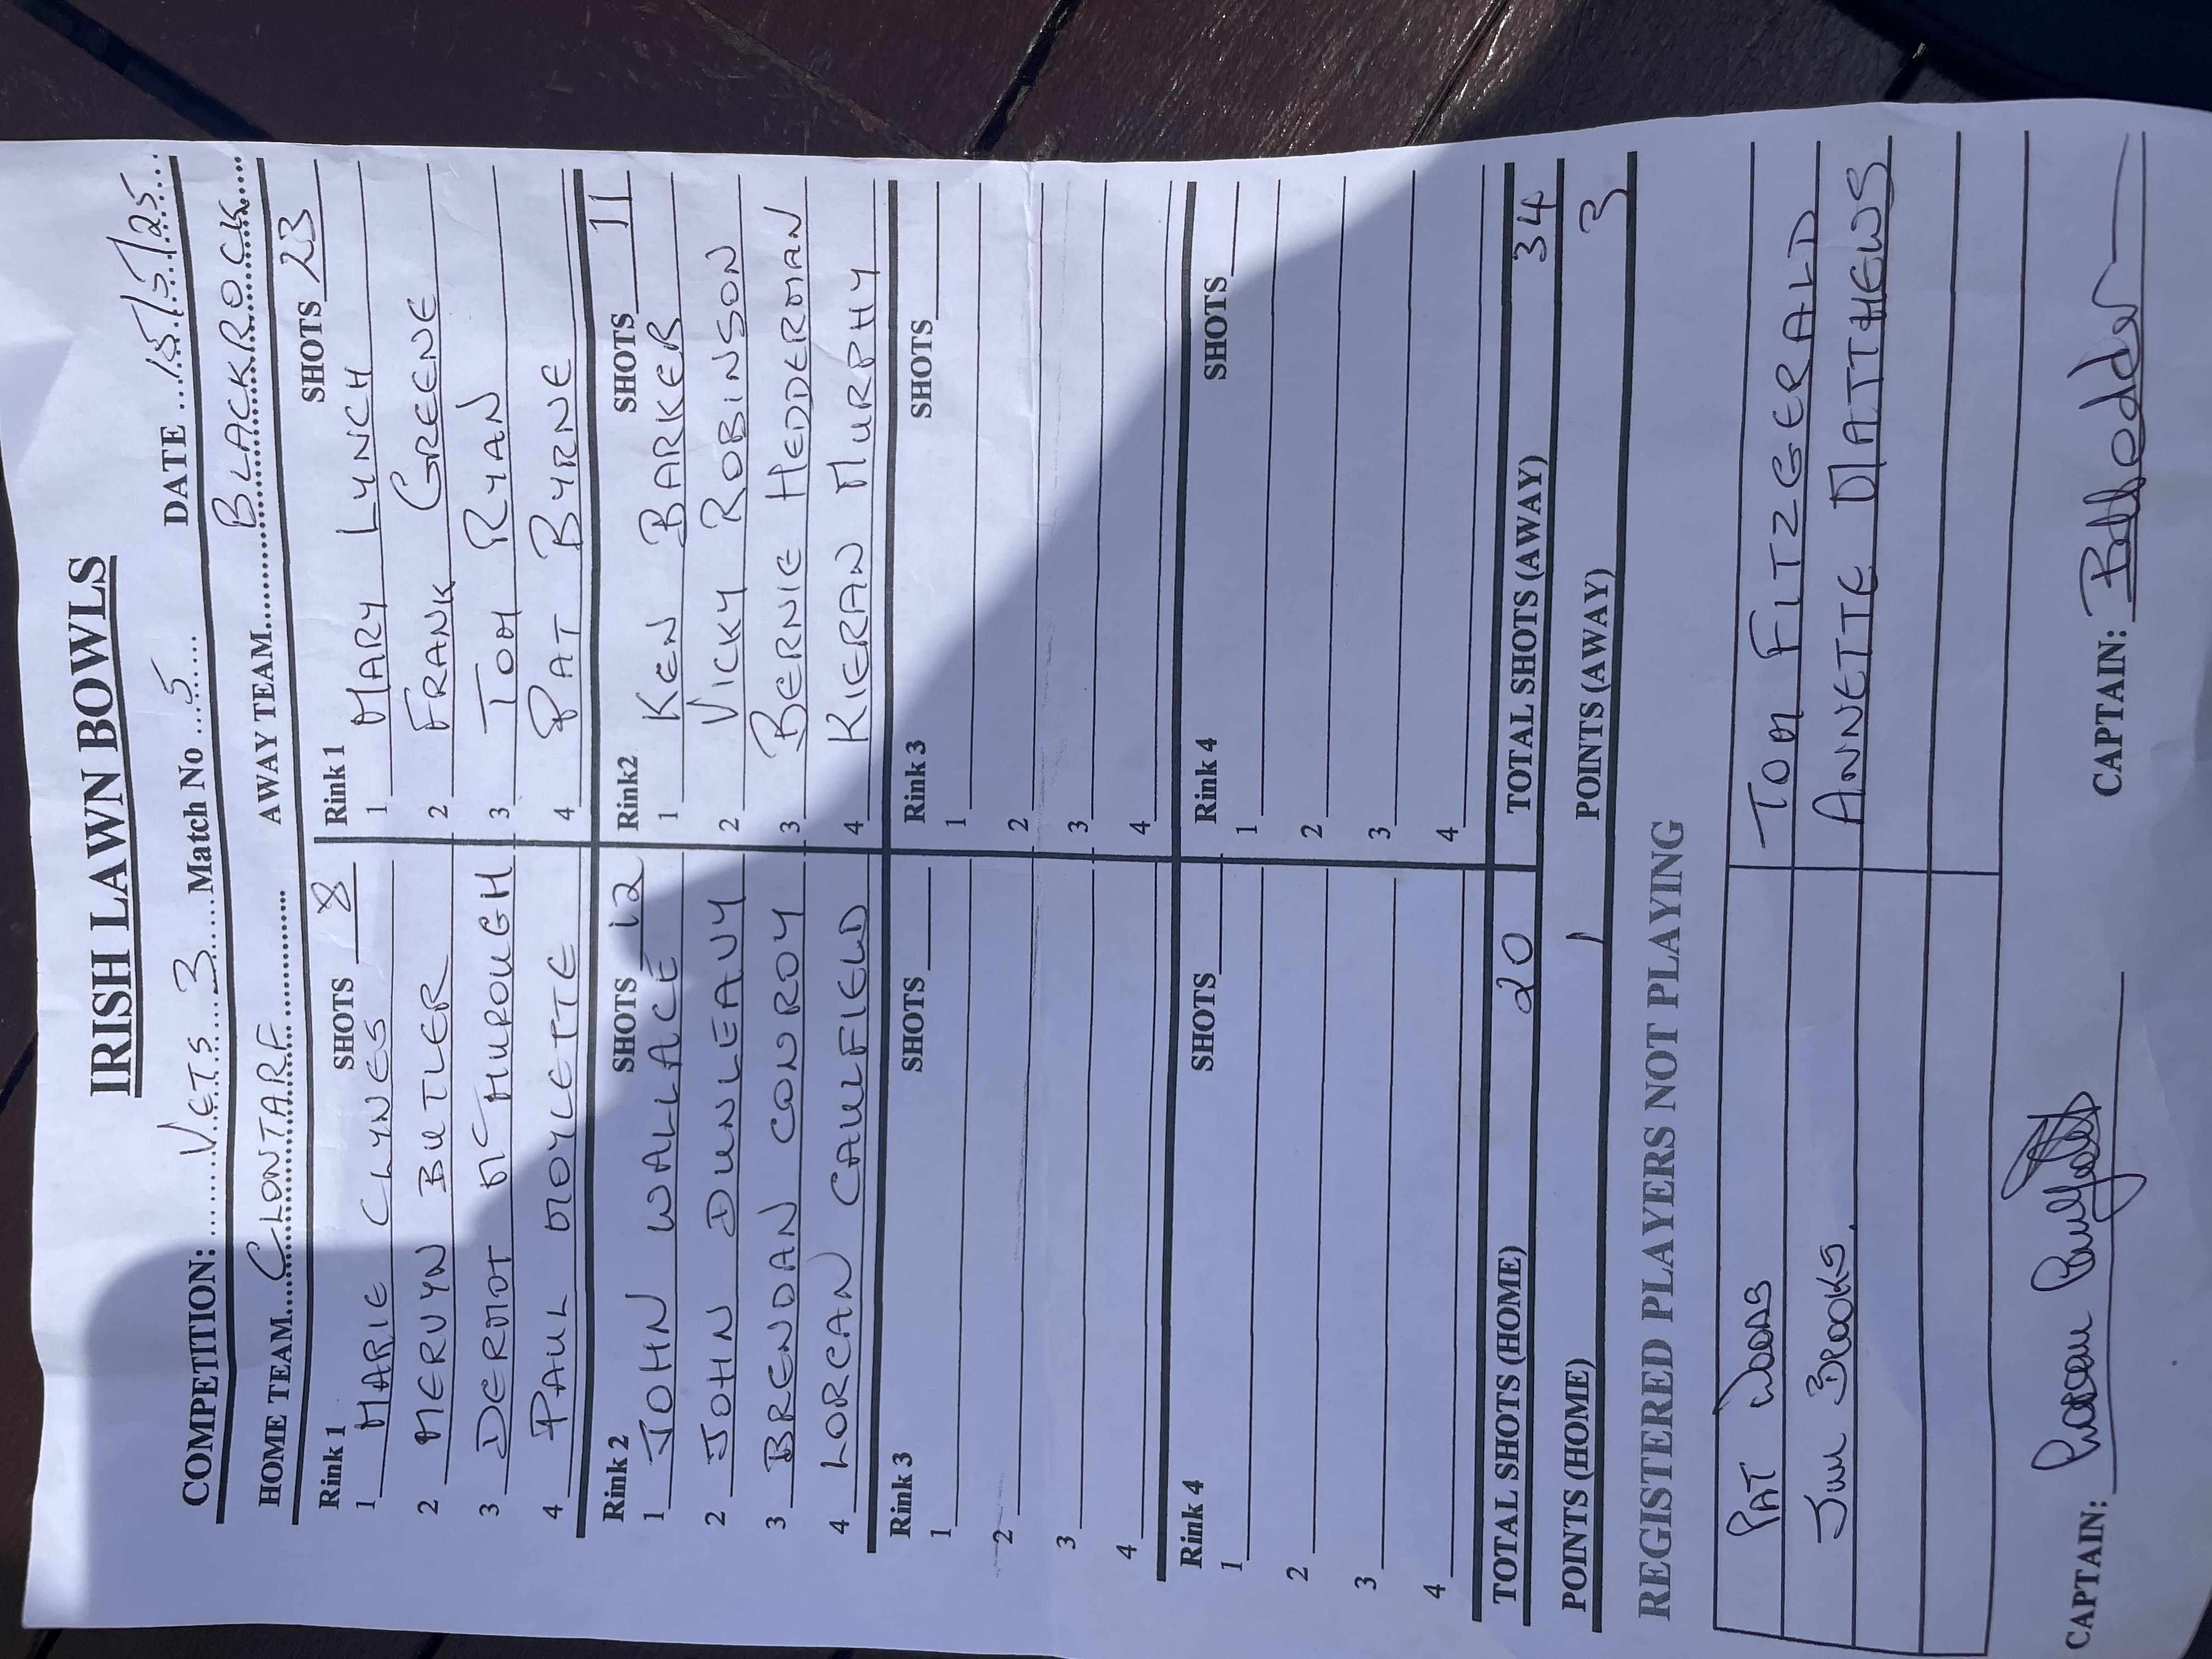 IRISH LAWN BOWLS
COMPETITION: VETS 3 Match No 5 DATE 15/5/25
HOME TEAM CLONTARF AWAY TEAM BLACKROCK
Rink 1 SHOTS 8 Rink 1 SHOTS 23
1 MARIE CLYNES 1 MARY LYNCH
2 MERVYN BUTLER 2 FRANK GREENE
3 DERMOT McMUROUGH 3 TOM RYAN
4 PAUL MOYLETTE 4 PAT BYRNE
Rink 2 SHOTS 12 Rink2 SHOTS 11
1 JOHN WALLACE 1 KEN BARKER
2 JOHN DUNLEAVY 2 VICKY ROBINSON
3 BRENDAN CONROY 3 BERNIE HEDDERMAN
4 LORCAN CAULFIELD 4 KIERAN MURPHY
Rink 3 SHOTS Rink 3 SHOTS
1 1
2 2
3 3
4 4
Rink 4 SHOTS Rink 4 SHOTS
1 1
2 2
3 3
4 4
TOTAL SHOTS (HOME) 20 TOTAL SHOTS (AWAY) 34
POINTS (HOME) 1 POINTS (AWAY) 3
REGISTERED PLAYERS NOT PLAYING
PAT WOODS TOM FITZGERALD
JIM BROOKS. ANNETTE MATTHEWS
CAPTAIN: CAPTAIN: